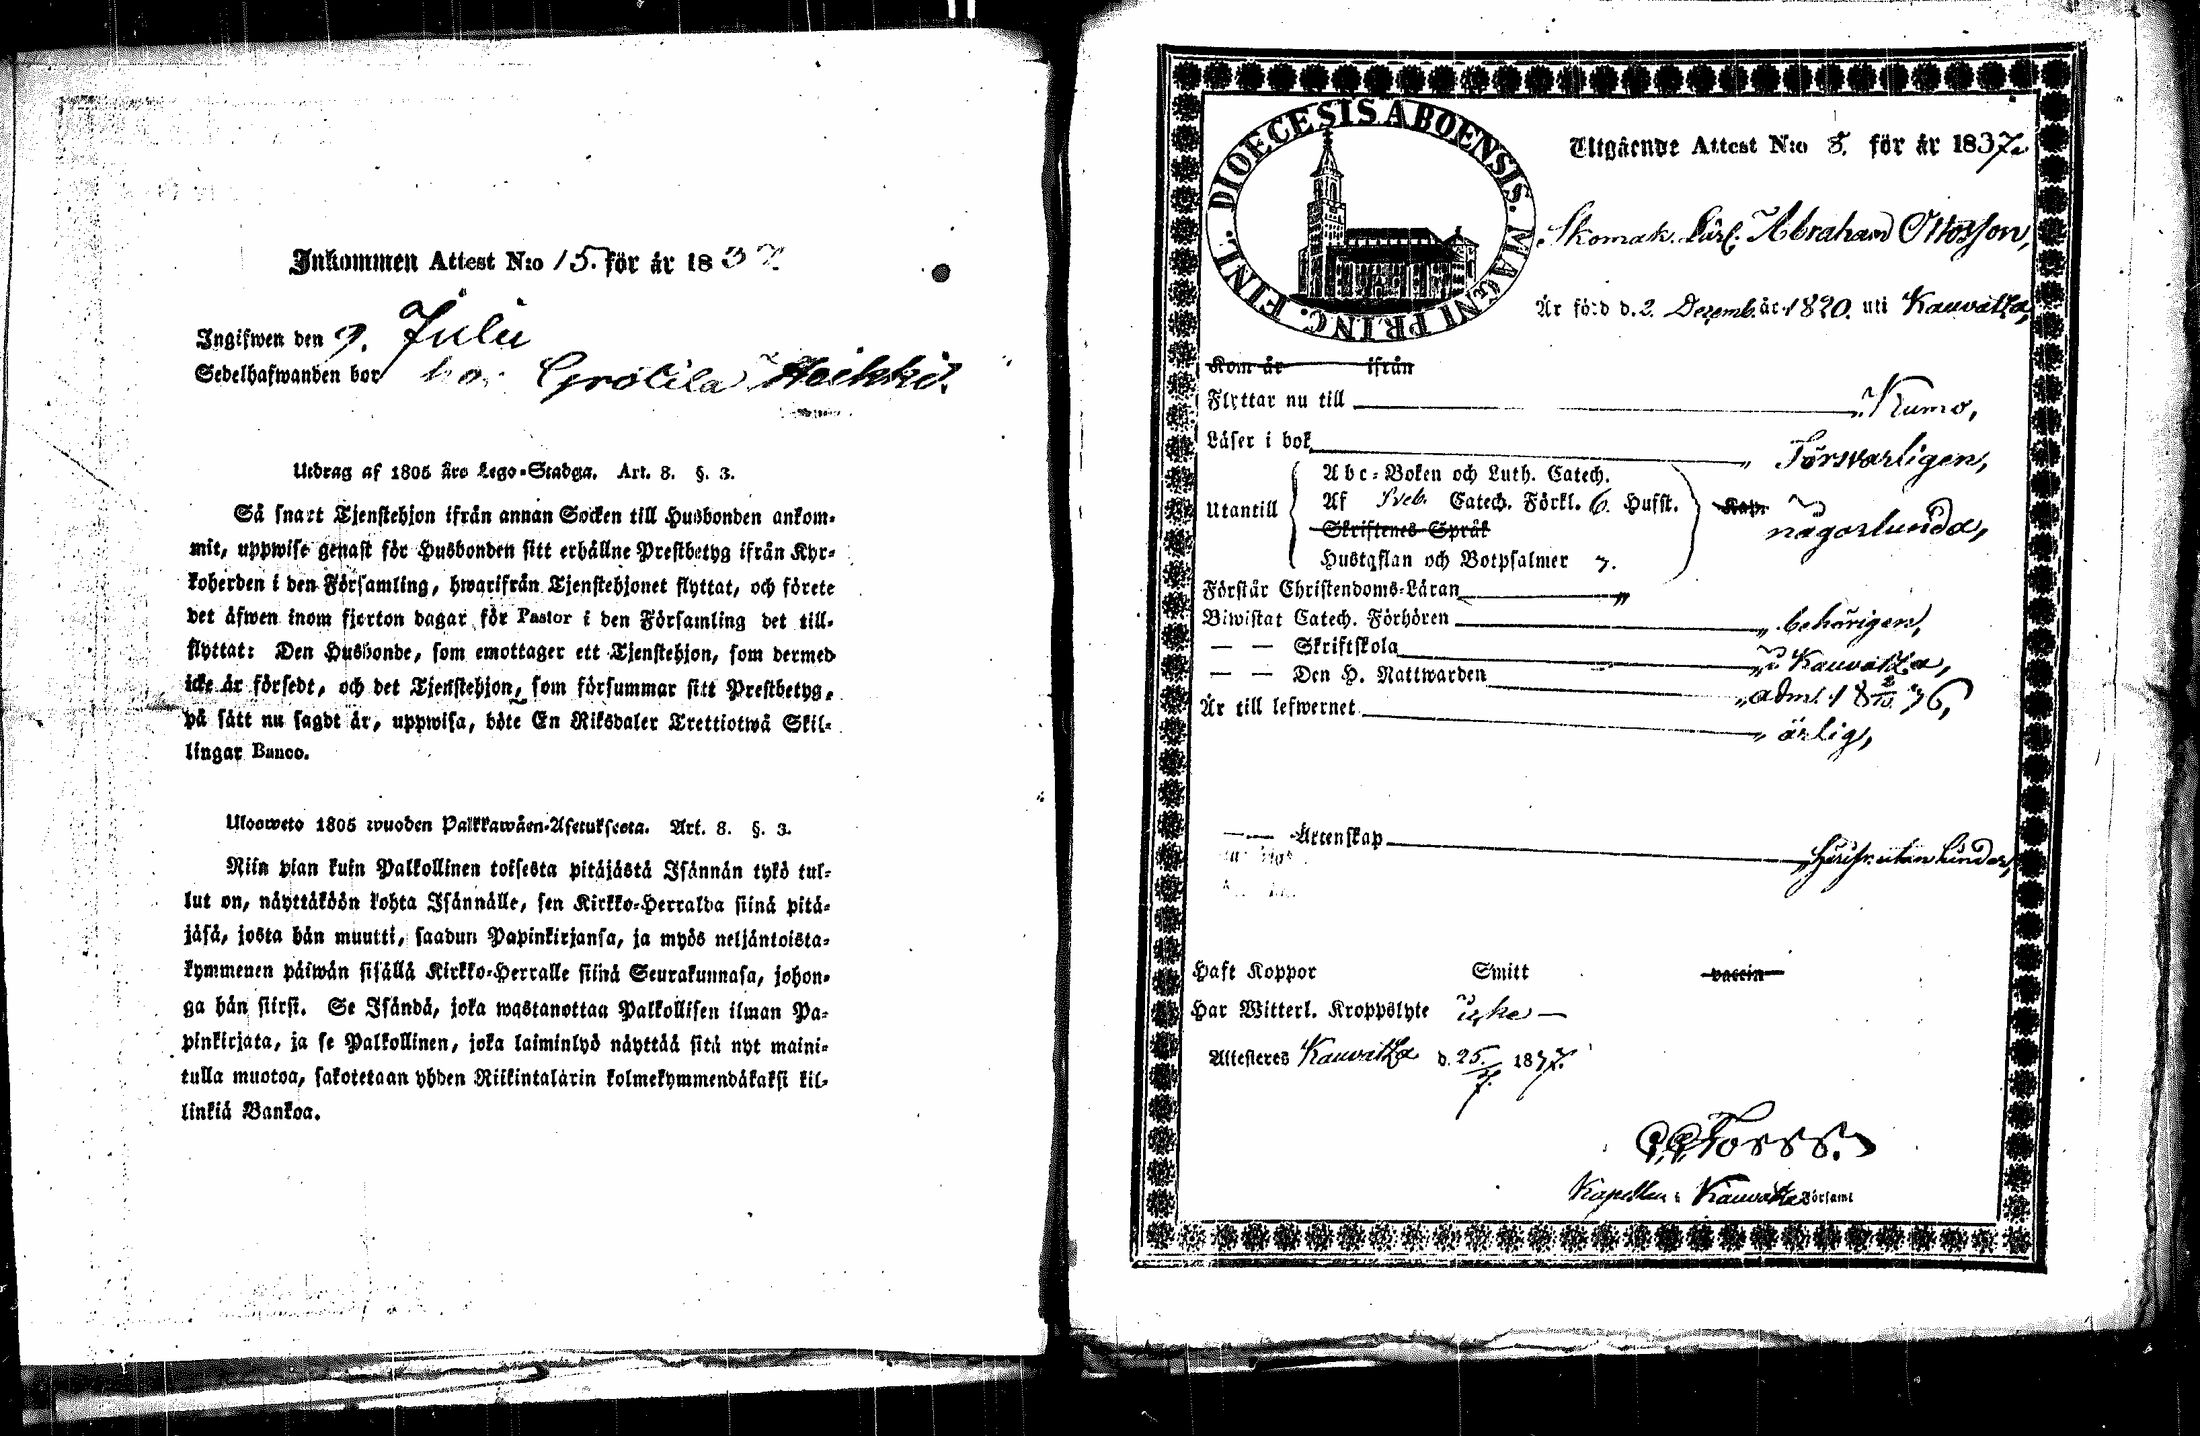 Inkommen Attest N:o 15. för år 1837.
Ingifwen den 9. Julii
Sedelhafwanden bor hos Grötila Heikki.
Utdrag af 1805 års Lego-Stadga. Art. 8. §. 3.
Så snart Tjenstehjon ifrån annan Socken till Husbonden ankom-
mit, uppwise genast för Husbonden sitt erhållne Prestbetyg ifrån Kyr-
koherden i den Församling, hwarifrån Tjenstehjonet flyttat, och förete
det äfwen inom fjorton dagar för Pastor i den Församling det till-
flyttat: Den Husbonde, som emottager ett Tjenstehjon, som dermed
icke är försedt, och det Tjenstehjon, som försummar sitt Prestbetyg,
på sätt nu sagdt är, uppwisa, böte En Riksdaler Trettiotwå Skil-
lingar Banco.
Ulosweto 1805 wuoden Palkkawäen-Asetuksesta. Art. 8. §. 3.
Niin pian kuin Palkollinen toisesta pitäjästä Isännän tykö tul-
lut on, näyttäköön kohta Isännälle, sen Kirkko-Herralda siinä pitä-
jäsä, josta hän muutti, saadun Papinkirjansa, ja myös neljäntoista-
kymmenen päiwän sisällä Kirkko-Herralle siinä Seurakunnasa, johon-
ga hän siirsi. Se Isändä, joka wastanottaa Palkollisen ilman Pa-
pinkirjata, ja se Palkollinen, joka laiminlyö näyttää sitä nyt maini-
tulla muotoa, sakotetaan yhden Riikintalarin kolmekymmendäkaksi kil-
linkiä Bankoa.
DIOECESIS ABOENSIS. MAGNI PRINC. FINL.
Utgående Attest N:o 8. för år 1837.
Skomak. Lärl. Abraham Ottosson,
Är född d. 2. Dezemb. år 1820. uti Kauvatza,
Kom år ifrån
Flyttar nu till Kumo,
Läser i bok Försvarligen,
Utantill
Abc-Boken och Luth. Catech.
Af Sveb. Catech. Förkl. 6. Hufst.
Skriftenes Språk
Hustaflan och Botpsalmer 7.
Kap.
någorlunda,
Förstår Christendoms-Läran "
Biwistat Catech. Förhören behörigen,
— — Skriftskola i Kauvatza,
— — Den H. Nattwarden adm. 18 36,
Är till lefwernet ärlig,
— — Ärtenskap
Haft Koppor Smitt vaccin
Har Witterl. Kroppslyte icke —
Attesteras Kauvatza d. 25/7. 1837.
Forss.
Kapellan i Kauvatza Församl